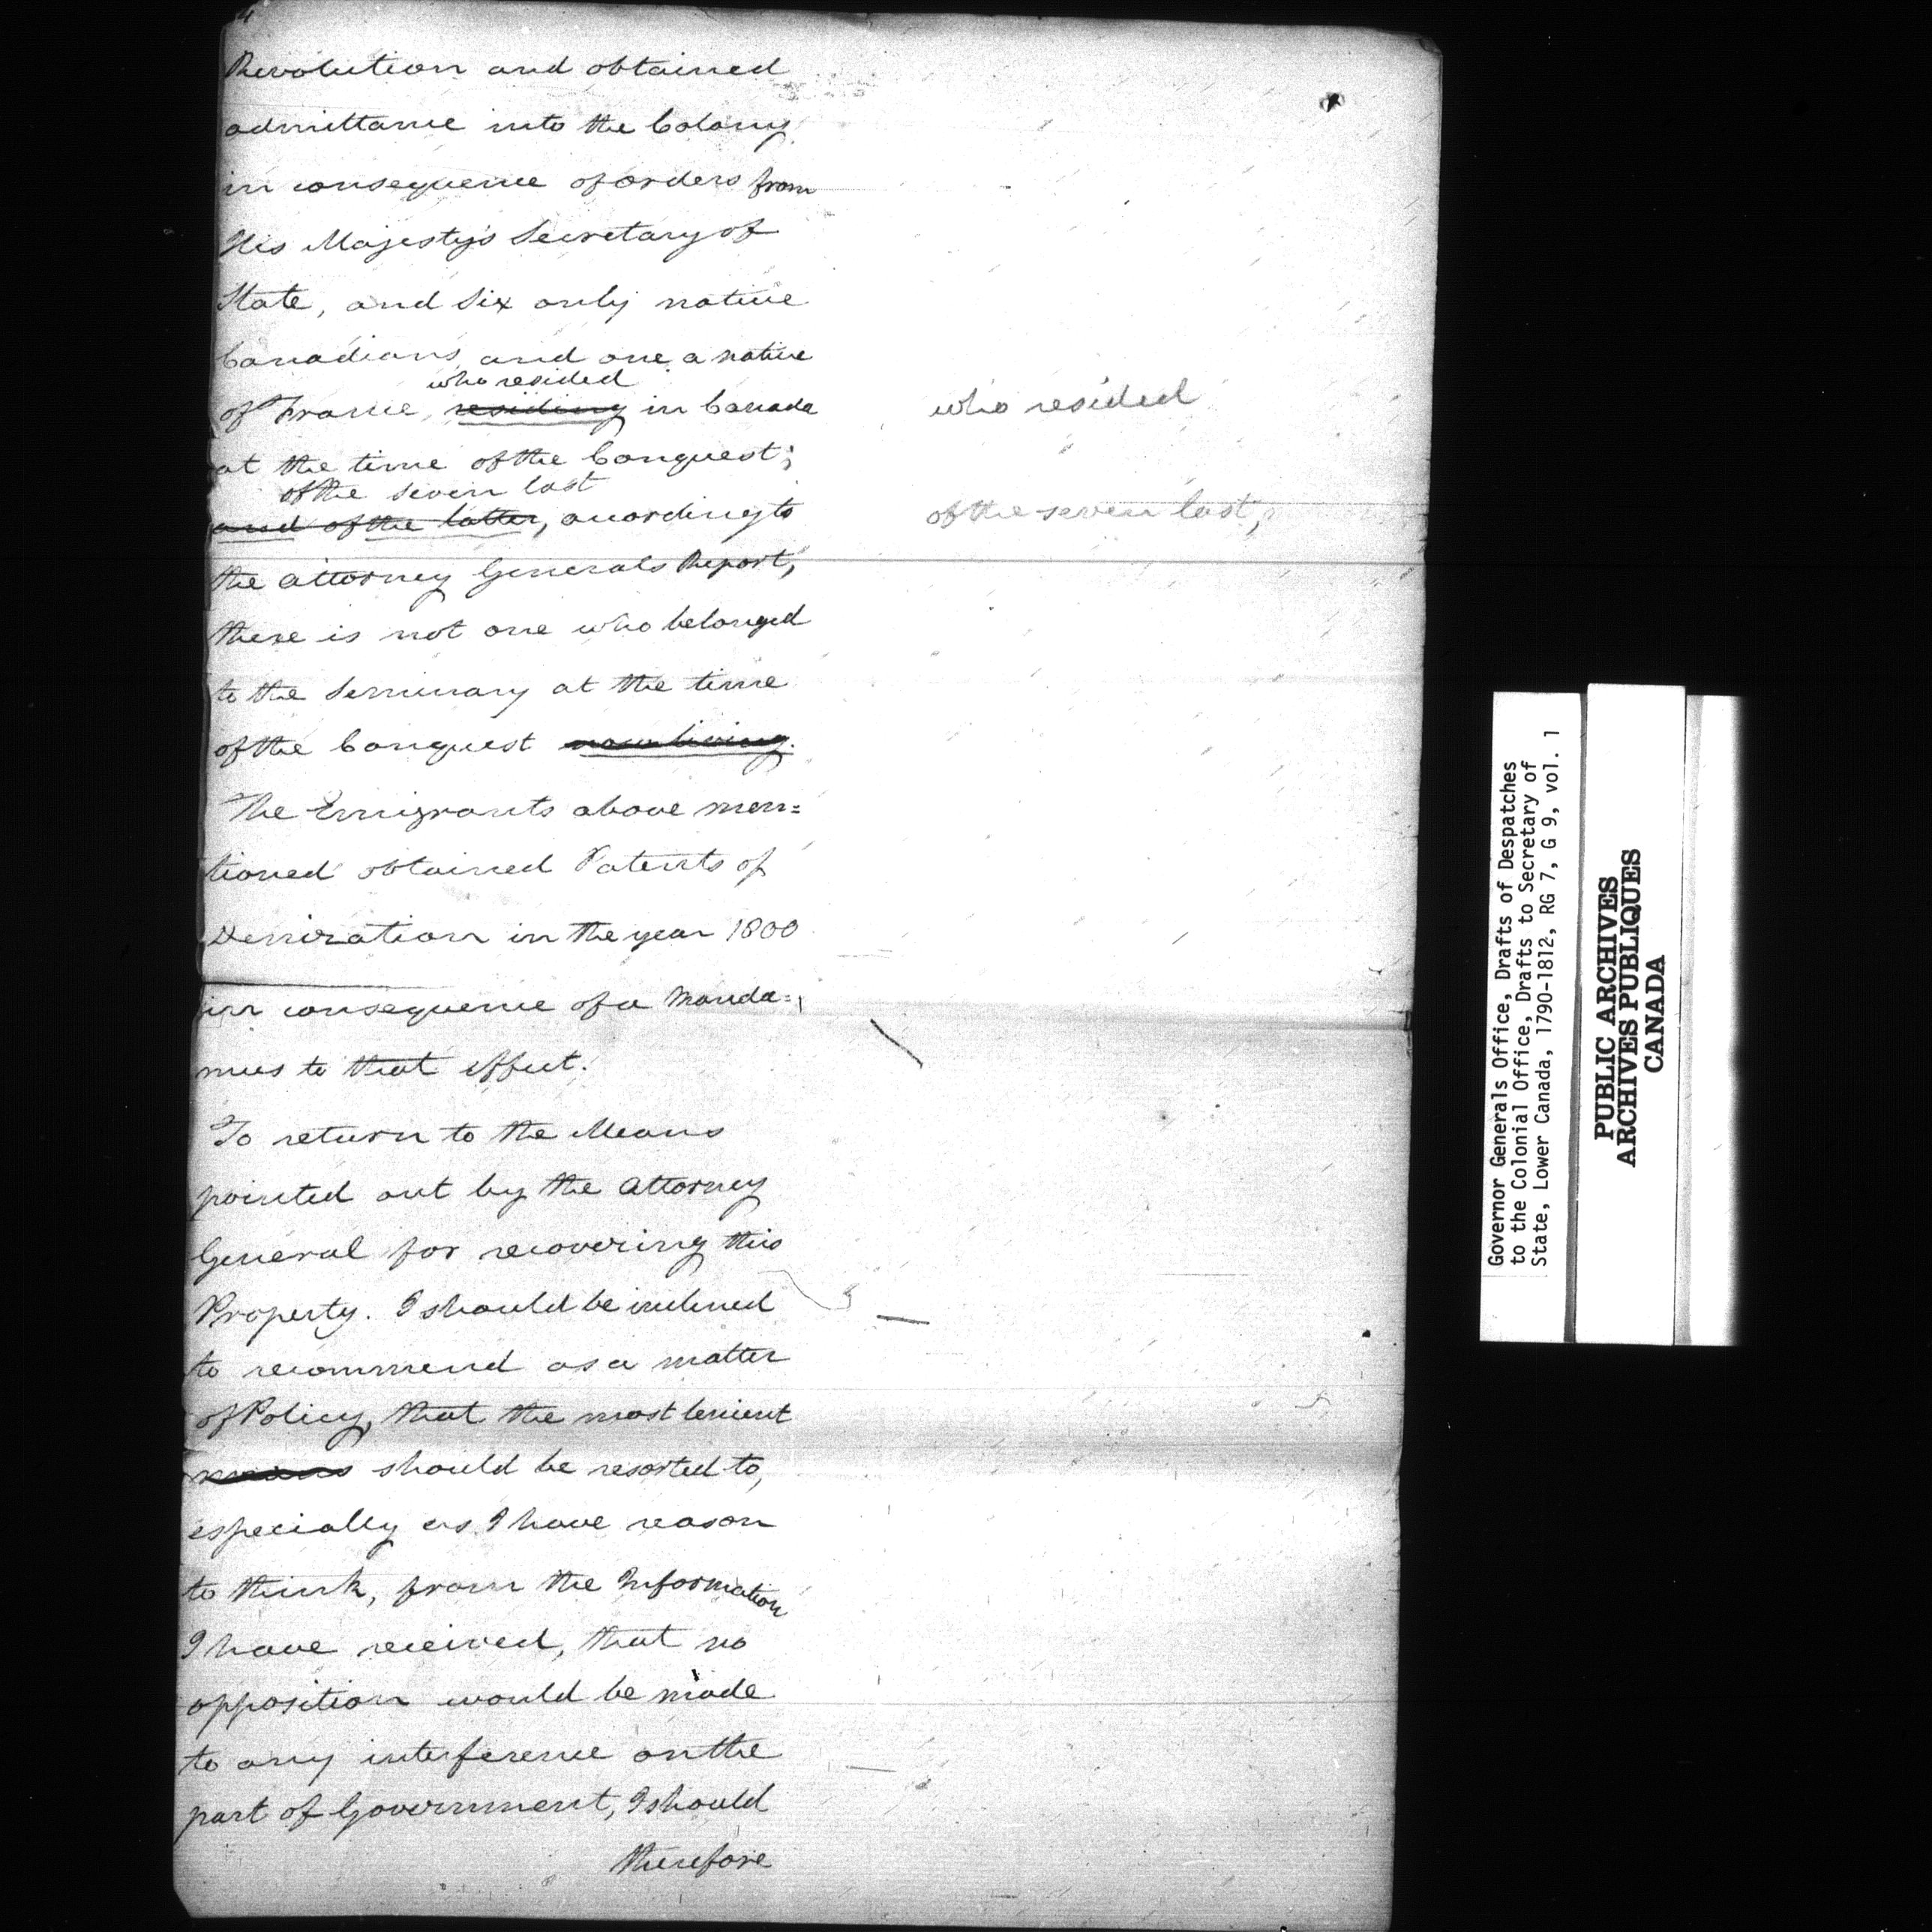 Revolution and obtained
admittance into the Colony
in consequence of orders from
His Majestys Secretary of
State, and Six only native
Canadians, and one a native
who resided
of France, residing in Canada
who resided
at the time of the Conquest;
of the seven last
and of the latter, according to
of the seven last,
the Attorney Generals Report,
there is not one who belonged
to the Seminary at the time
of the Conquest now living.
The Emigrants above men=
tioned obtained Patents of
Denization in the year 1800
in consequence of a Manda=
mus to that effect.
To return to the Means
pointed out by the Attorney
General for recovering this
Property. I should be inclined
to recommend as a matter
of Policy, that the most lenient
means should be resorted to,
especially as I have reason
to think, from the Information
I have received, that no
opposition would be made
to any interference on the
part of Government, I should
therefore
Governor Generals Office, Drafts of Despatches
to the Colonial Office, Drafts to Secretary of
State, Lower Canada, 1790-1812, RG 7, G 9, vol. 1
PUBLIC ARCHIVES
ARCHIVES PUBLIQUES
CANADA